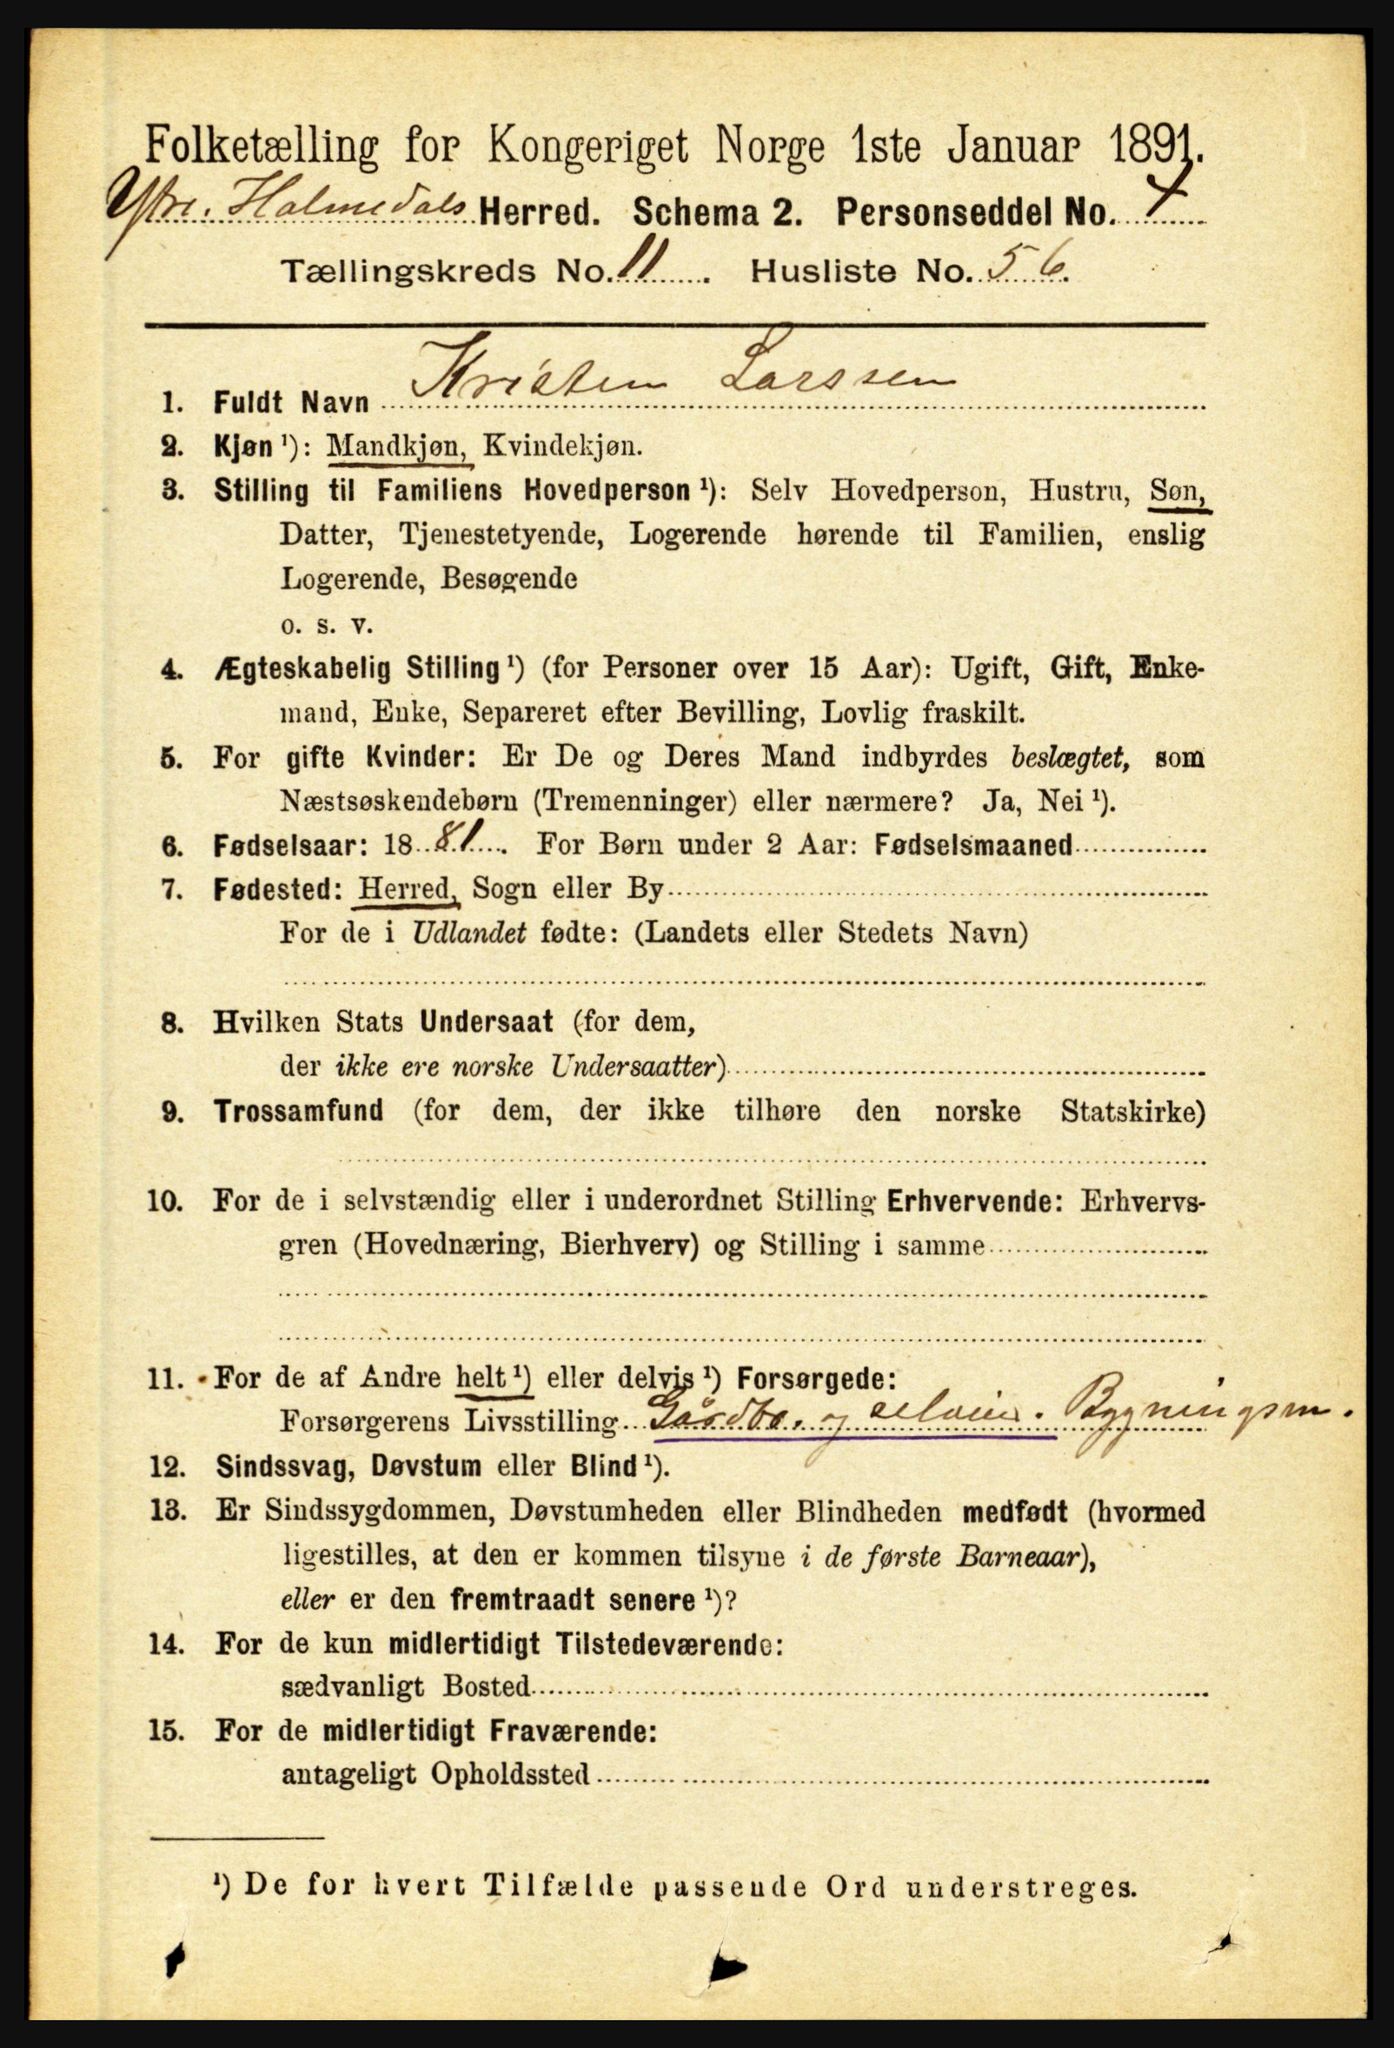 Folketælling for Kongeriget Norge 1ste Januar 1891.
Ytre Holmedals Herred. Schema 2. Personseddel No. 4
Tællingskreds No. 11. Husliste No. 56.
1. Fuldt Navn Kristen Larssen
2. Kjøn ¹): Mandkjøn, Kvindekjøn.
3. Stilling til Familiens Hovedperson ¹): Selv Hovedperson, Hustru, Søn,
Datter, Tjenestetyende, Logerende hørende til Familien, enslig
Logerende, Besøgende
o. s. v.
4. Ægteskabelig Stilling ¹) (for Personer over 15 Aar): Ugift, Gift, Enke-
mand, Enke, Separeret efter Bevilling, Lovlig fraskilt.
5. For gifte Kvinder: Er De og Deres Mand indbyrdes beslægtet, som
Næstsøskendebørn (Tremenninger) eller nærmere? Ja, Nei ¹).
6. Fødselsaar: 1881. For Børn under 2 Aar: Fødselsmaaned
7. Fødested: Herred, Sogn eller By
For de i Udlandet fødte: (Landets eller Stedets Navn)
8. Hvilken Stats Undersaat (for dem,
der ikke ere norske Undersaatter)
9. Trossamfund (for dem, der ikke tilhøre den norske Statskirke)
10. For de i selvstændig eller i underordnet Stilling Erhvervende: Erhvervs-
gren (Hovednæring, Bierhverv) og Stilling i samme
11. For de af Andre helt ¹) eller delvis ¹) Forsørgede:
Forsørgerens Livsstilling Gårdbr. og selveier. Bygningsm.
12. Sindssvag, Døvstum eller Blind ¹).
13. Er Sindssygdommen, Døvstumheden eller Blindheden medfødt (hvormed
ligestilles, at den er kommen tilsyne i de første Barneaar),
eller er den fremtraadt senere ¹)?
14. For de kun midlertidigt Tilstedeværende:
sædvanligt Bosted
15. For de midlertidigt Fraværende:
antageligt Opholdssted
¹) De for hvert Tilfælde passende Ord understreges.